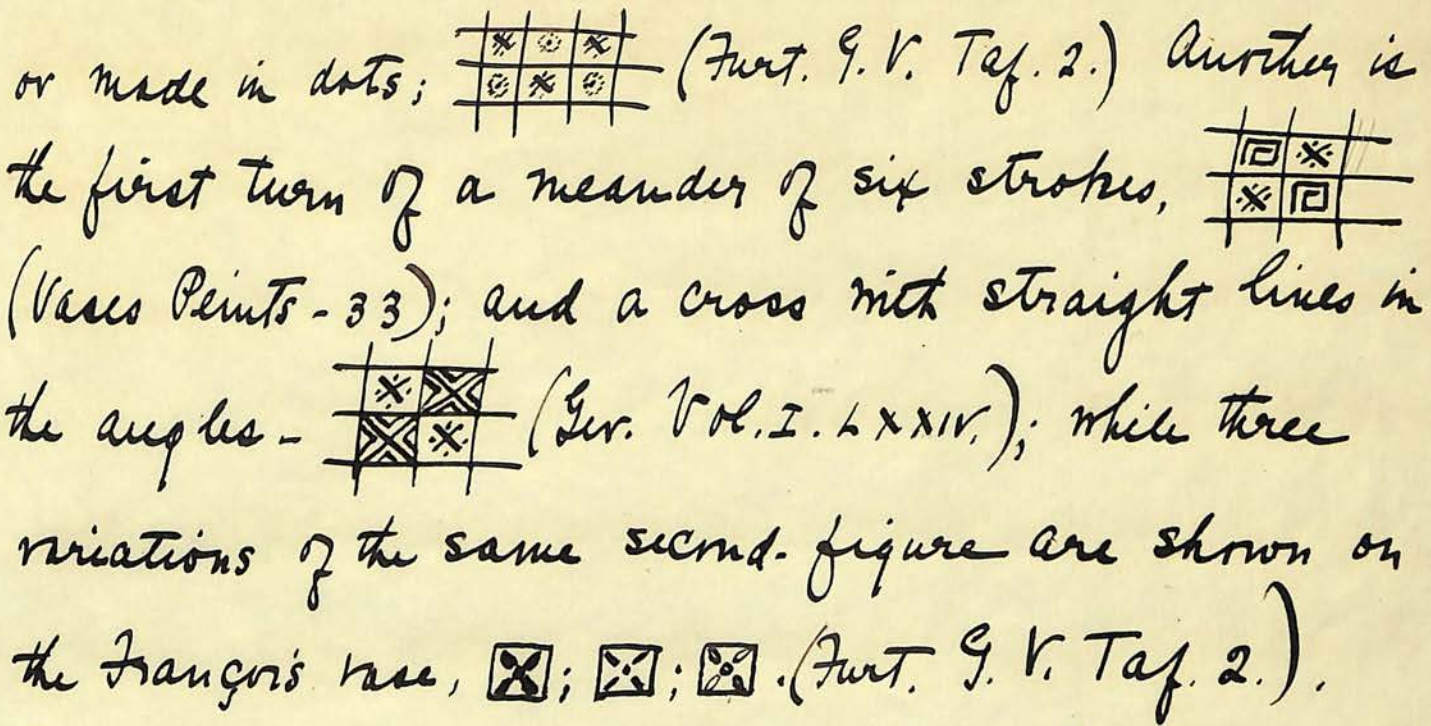 or made in dots; (Furt. G. V. Taf. 2.) Another is
the first turn of a meander of six strokes,
(Vases Peints - 33); and a cross with straight lines in
the angles - (Ger. Vol. I. LXXIV.); while three
variations of the same second-figure are shown on
the François vase, ; ; . (Furt. G. V. Taf. 2.).